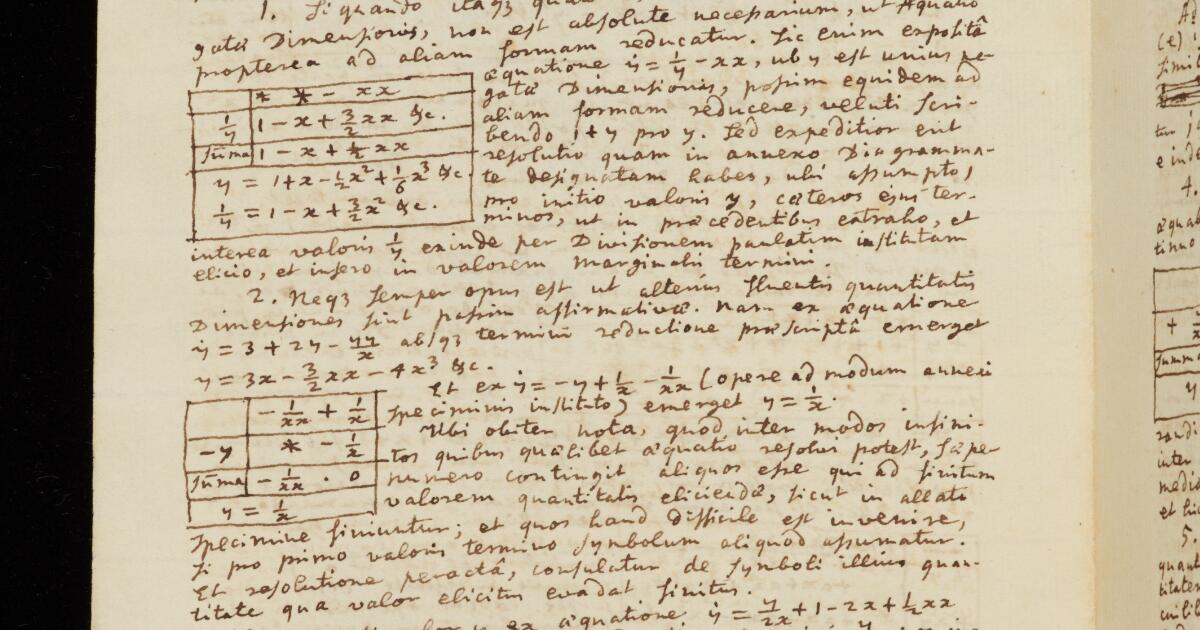 1. Si quando itaqȝ
gatæ Dimensionis, non est absolute necessarium, ut Æquatio
propterea ad aliam formam reducatur. Sic enim expositâ
æquatione ẏ = 1/y - xx, ubi y est unius ne-
gatæ Dimensionis, possim equidem ad
aliam formam reducere, veluti scri-
bendo 1+y pro y. Sed expeditior erit
resolutio quam in annexo Diagramma-
te designatam habes, ubi assumpto 1
pro initio valoris y, cæteros ejus ter-
minos, ut in præcedentibus extraho, et
* * - xx
1/y 1 - x + 3/2 xx &c.
Sum̄a 1 - x + 1/2 xx
y = 1+x-1/2 x² + 1/6 x³ &c.
1/y = 1 - x + 3/2 x² &c.
interea valoris 1/y exinde per Divisionem paulatim institutam
elicio, et insero in valorem marginalis termini.
2. Neqȝ semper opus est ut alterius fluentis quantitatis
Dimensiones sint passim affirmativæ. Nam ex æquatione
ẏ = 3 + 2y - yy/x absqȝ termini reductione præscriptâ emerget
y = 3x - 3/2 xx - 4x³ &c.
Et ex ẏ = -y + 1/x - 1/xx (opere ad modum annexi
speciminis instituto) emerget y = 1/x.
Ubi obiter nota, quod inter modos infini-
tos quibus quælibet æquatio resolvi potest, sæpe-
numero contingit aliquos esse qui ad finitum
valorem quantitatis eliciendæ, sicut in allati
- 1/xx + 1/x
-y * - 1/x
Sum̄a - 1/xx . 0
y = 1/x
specimine finiuntur; et quos haud difficile est invenire,
si pro primo valoris termino symbolum aliquod assumatur.
Et resolutione peractâ, consulatur de symboli illius quan-
titate qua valor elicitus evadat finitus.
ex æquatione, ẏ = y/2x + 1 - 2x + 1/2 xx
Ad
(e)
4.
5.